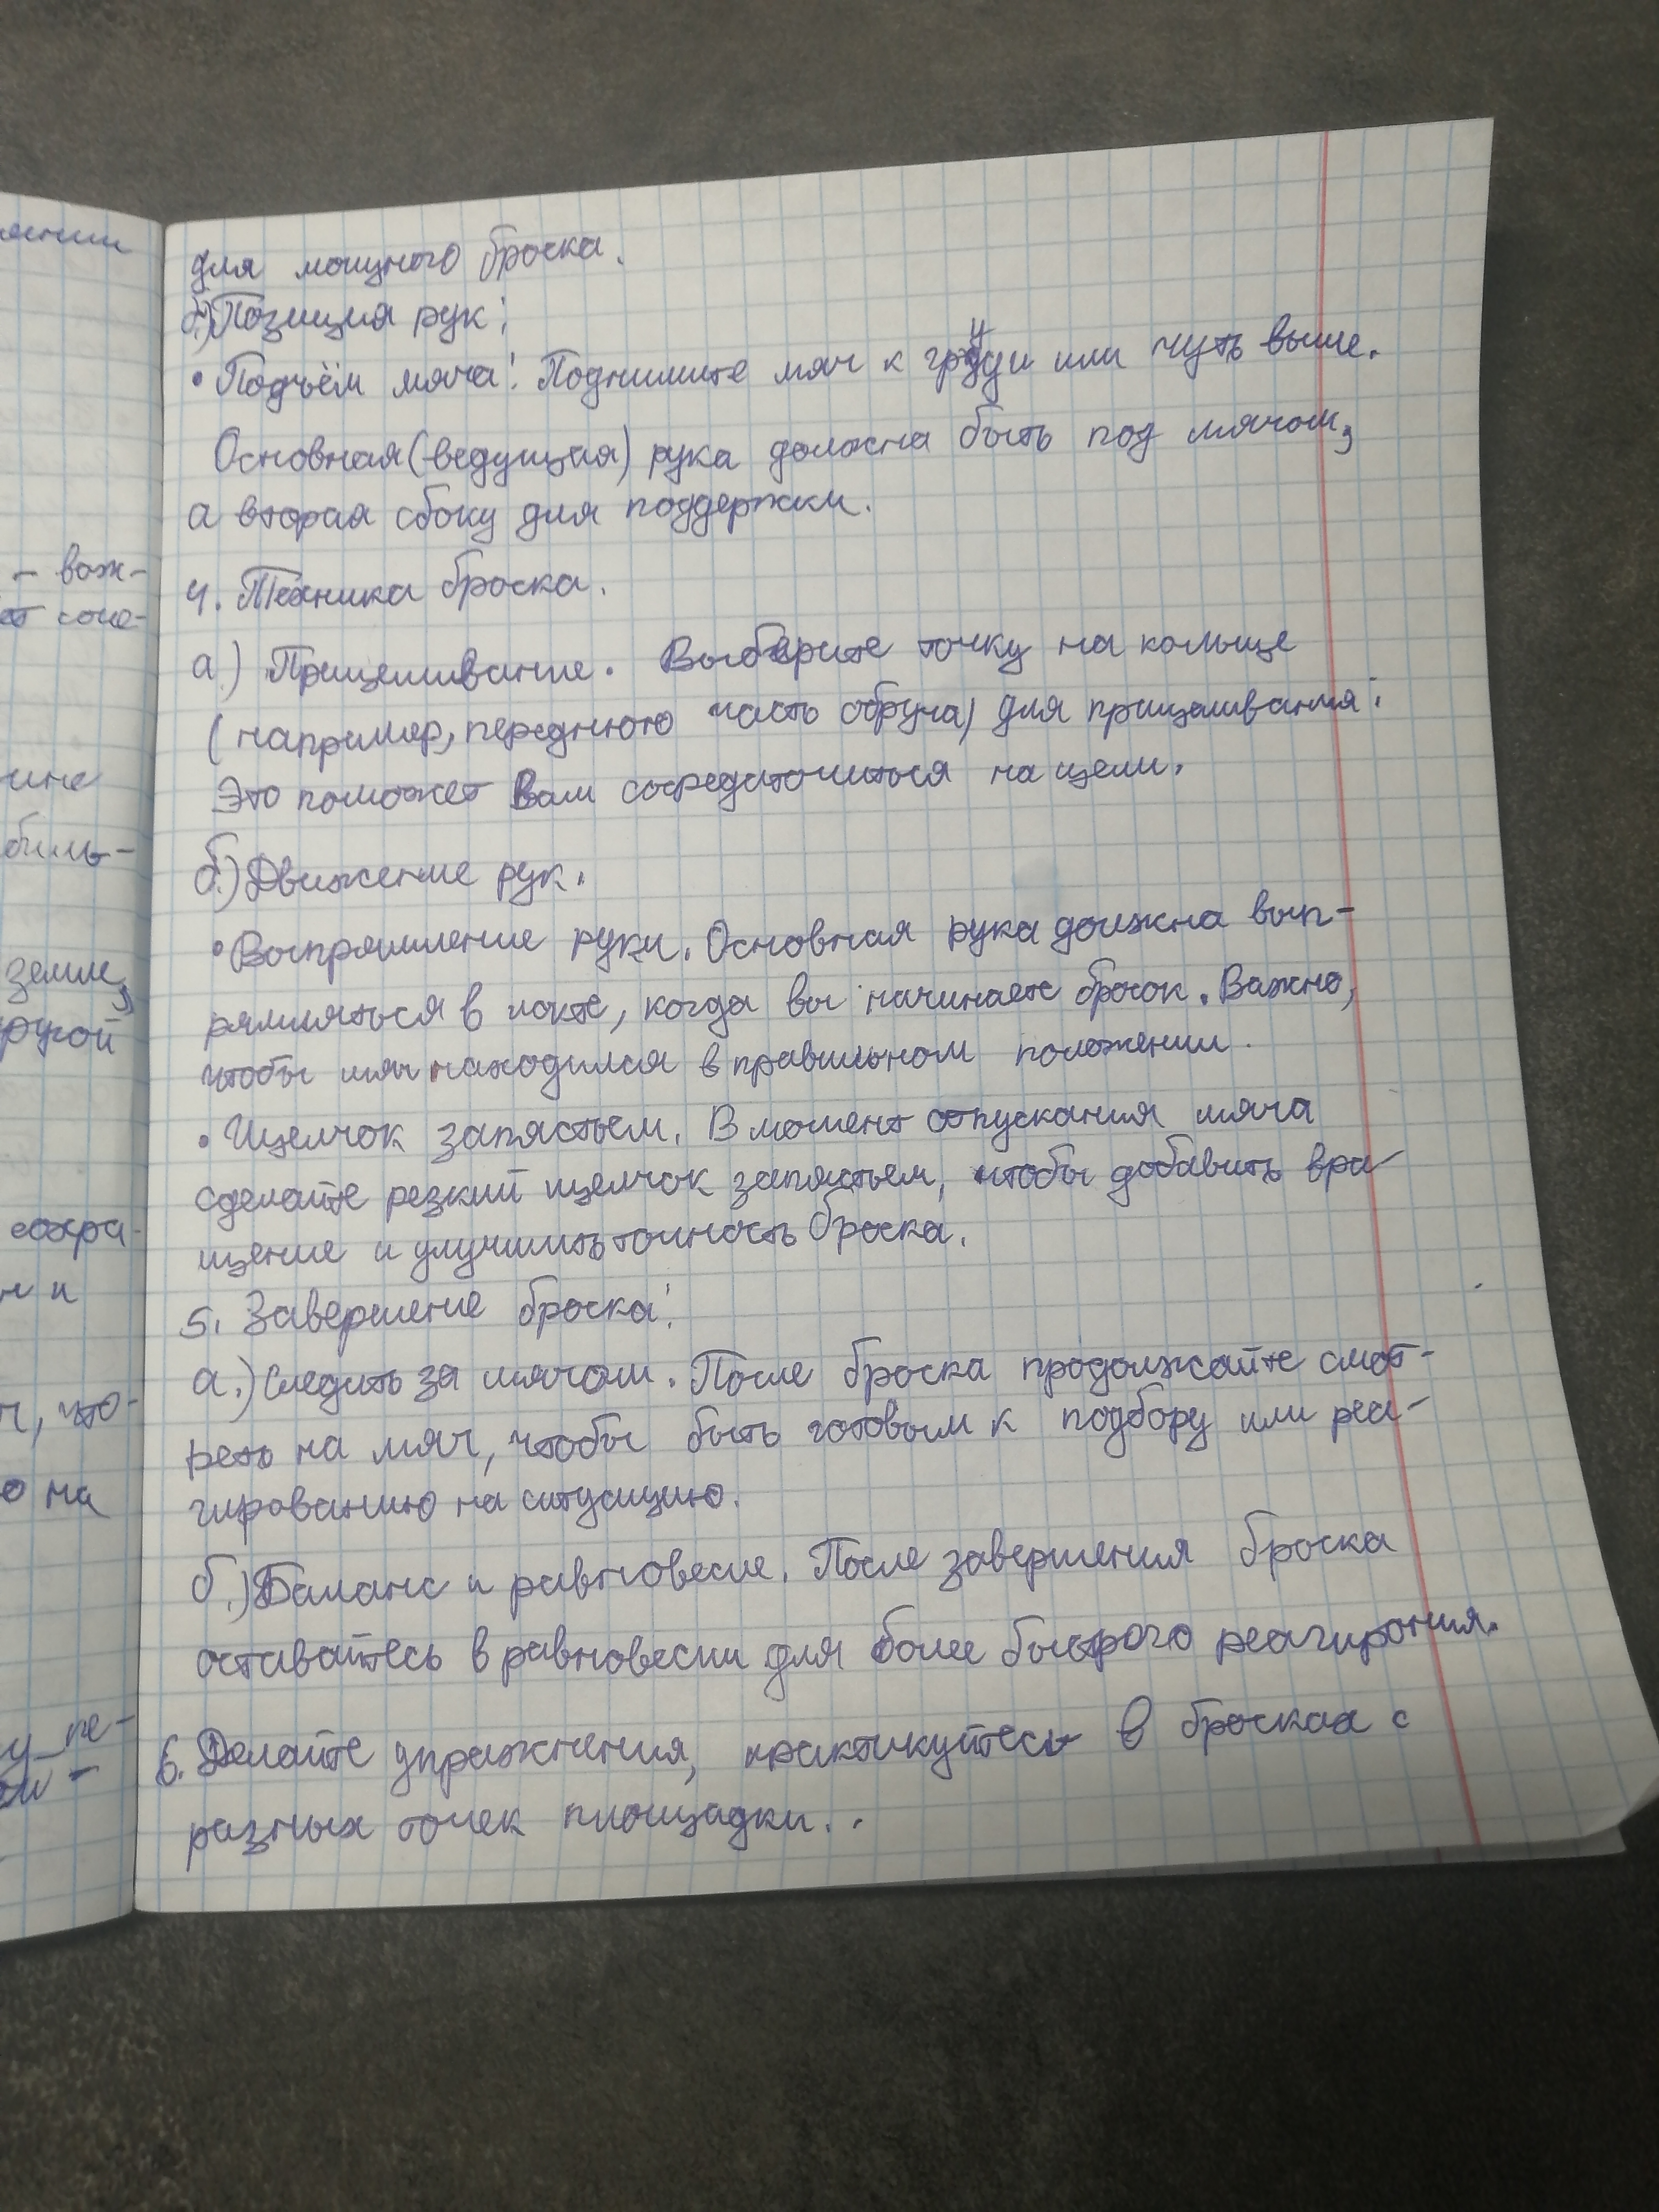 для мощного броска.
б.) Позиция рук:
• Подъём мяча: Поднимите мяч к груди или чуть выше.
Основная (ведущая) рука должна быть под мячом,
а вторая сбоку для поддержки.
4. Техника броска.
а.) Прицеливание. Выберите точку на кольце
(например, переднюю часть обруча) для прицеливания.
Это поможет Вам сосредоточиться на цели.
б.) Движение рук.
• Выпрямление руки. Основная рука должна вып-
рямляться в локте, когда вы начинаете бросок. Важно,
чтобы мяч находился в правильном положении.
• Щелчок запястьем. В момент отпускания мяча
сделайте резкий щелчок запястьем, чтобы добавить вра-
щение и улучшить точность броска.
5. Завершение броска:
а.) Следить за мячом. После броска продолжайте смот-
реть на мяч, чтобы быть готовым к подбору или реа-
гированию на ситуацию.
б.) Баланс и равновесие. После завершения броска
оставайтесь в равновесии для более быстрого реагирония.
6. Делайте упражнения, практикуйтесь в бросках с
разных точек площадки.
- важ-
земле,
другой
сохра-
н и
ч, что-
о на